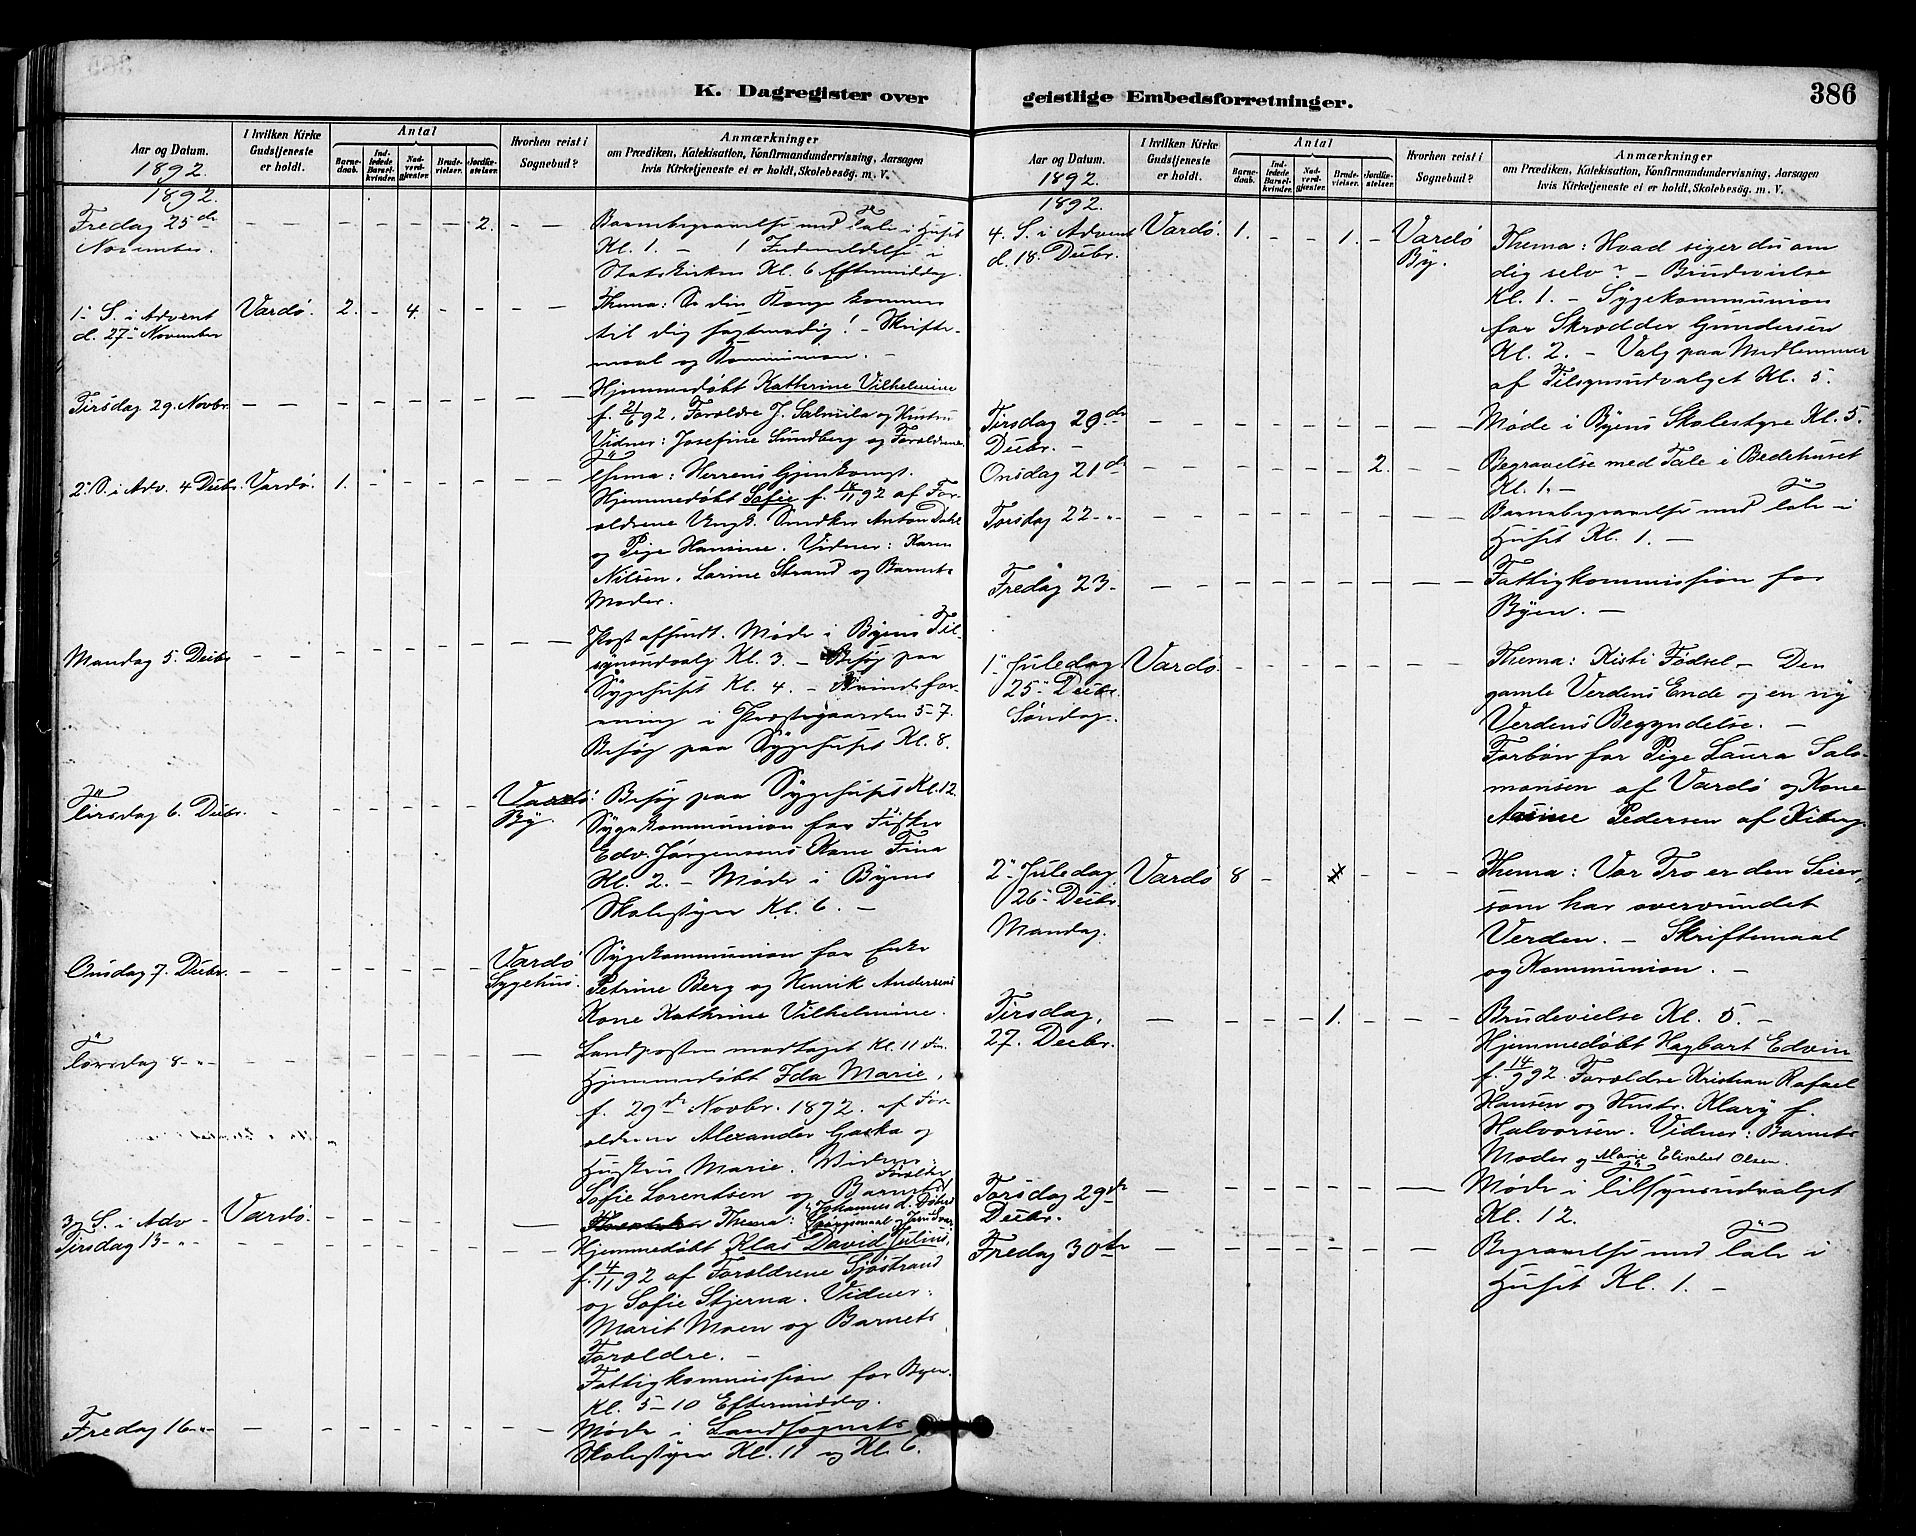 K. Dagregister over geistlige Embedsforretninger.
386
Aar og Datum.
1892.
I hvilken Kirke
Gudstjeneste
er holdt.
Antal
Barne-
daab.
Ind-
ledede
Barsel-
kvinder.
Nad-
verd-
gjester.
Brude-
vielser.
Jordfæ-
stelser.
Hvorhen reist i
Sognebud?
Anmærkninger
om Prædiken, Katekisation, Konfirmandundervisning, Aarsagen
hvis Kirketjeneste ei er holdt, Skolebesøg. m. V.
1892.
Fredag 25de
November.
2.
Barnebegravelse med Tale i Huset
Kl. 1. — 1 Indmeldelse i
Statskirken Kl. 6 Eftermiddag.
1. S. i Advent
d. 27. November
Vardø. 2. - 4.
Thema: Se din Konge kommer
til dig sagtmodig! – Skrifte-
maal og Kommunion. –
Tirsdag 29. Novbr.
Hjemmedøbt Katherine Vilhelmine
f. 2/6 92. Forældre J. Salmila og Hustru
Vidner: Josefine Sundberg og Forældrene.
2. S. i Adv. 4 Decbr. Vardø. 1.
Thema: Herrens Gjenkomst.
Hjemmedøbt Sofie f. 14/11 92 af For-
ældrene Ungk. Snedker Anton Dahl
og Pige Hansine. Vidner: Karen
Nilsen, Larine Strand og Barnets
Moder.
Mandag 5. Decbr
Post afsendt. Møde i Byens Til-
synsudvalg Kl. 3. – Besøg paa
Sygehuset Kl. 4. – Kvindefor-
ening i Præstegaarden 5–7.
Besøg paa Sygehuset Kl. 8.
Tirsdag 6. Decbr.
Vardø
By.
Besøg paa Sygehuset Kl. 12.
Sygekommunion for Fisker
Edv. Jørgensens Kone Fina
Kl. 2. – Møde i Byens
Skolestyre Kl. 6. –
Onsdag 7. Decbr.
Vardø
Sygehus.
Sygekommunion for Enke
Petrine Berg og Henrik Andersens
Kone Kathrine Vilhelmine.
Torsdag 8 - "
Landposten modtaget Kl. 11 Fm.
Hjemmedøbt Ida Marie,
f. 29de Novbr. 1892. af For-
ældrene Alexander Gaska og
Hustru Marie. Vidner:
Sofie Lorentsen og Barnets
Forældre
3. S. i Adv – Vardø.
Thema: Johannes d. Døbers
Spørgsmaal og Jesu Svar
Tirsdag 13 - "
Hjemmedøbt Klas David Julius,
f. 4/11 92 af Forældrene Sjöstrand
og Sofie Stjerna. Vidner:
Marit Moen og Barnets
Forældre. –
Fattigkommission for Byen.
Kl. 5–10 Eftermiddag.
Fredag 16 - "
Møde i Landsognets
Skolestyre Kl. 11 og Kl. 6.
Aar og Datum.
1892.
I hvilken Kirke
Gudstjeneste
er holdt.
Antal
Barne-
daab.
Ind-
ledede
Barsel-
kvinder.
Nad-
verd-
gjester.
Brude-
vielser.
Jordfæ-
stelser.
Hvorhen reist i
Sognebud?
Anmærkninger
om Prædiken, Katekisation, Konfirmandundervisning, Aarsagen
hvis Kirketjeneste ei er holdt, Skolebesög. m. V.
1892.
4. S. i Advent
d. 18. Decbr.
Vardø. 1. - - 1. -
Vardø
By.
Thema: Hvad siger du om
dig selv? – Brudevielse
Kl. 1. – Sygekommunion
for Skrædder Gundersen
Kl. 2. – Valg paa Medlemmer
af Tilsynsudvalget Kl. 5.
Tirsdag 20de
Decbr. –
Møde i Byens Skolestyre Kl. 5.
Onsdag 21de
2.
Begravelse med Tale i Bedehuset
Kl. 1. –
Torsdag 22 - "
Barnebegravelse med Tale i
Huset Kl. 1. –
Fredag 23 -
Fattigkommission for
Byen. –
1. Juledag
25. Decbr.
Søndag.
Vardø.
Thema: Kristi Fødsel – Den
gamle Verdens Ende og en ny
Verdens Begyndelse. –
Forbøn for Pige Laura Salo-
monsen af Vardø og Kone
Pedersen af Kiberg.
2. Juledag
26. Decbr.
Mandag.
Vardø 8
Thema: Vor Tro er den Seier,
som har overvundet
Verden. – Skriftemaal
og Kommunion. –
Tirsdag,
27. Decbr.
1.
Brudevielse Kl. 5. –
Hjemmedøbt Hagbart Edvin
f. 14/9 92. Forældre Kristian Rafael
Hansen og Hustr. Klary f.
Halvorsen. Vidner: Barnets
Moder og Marie Elisabet Olsen.
Torsdag 29de
Decbr.
Møde i Tilsynsudvalget
Kl. 12.
Fredag 30te
Begravelse med Tale i
Huset Kl. 1. –